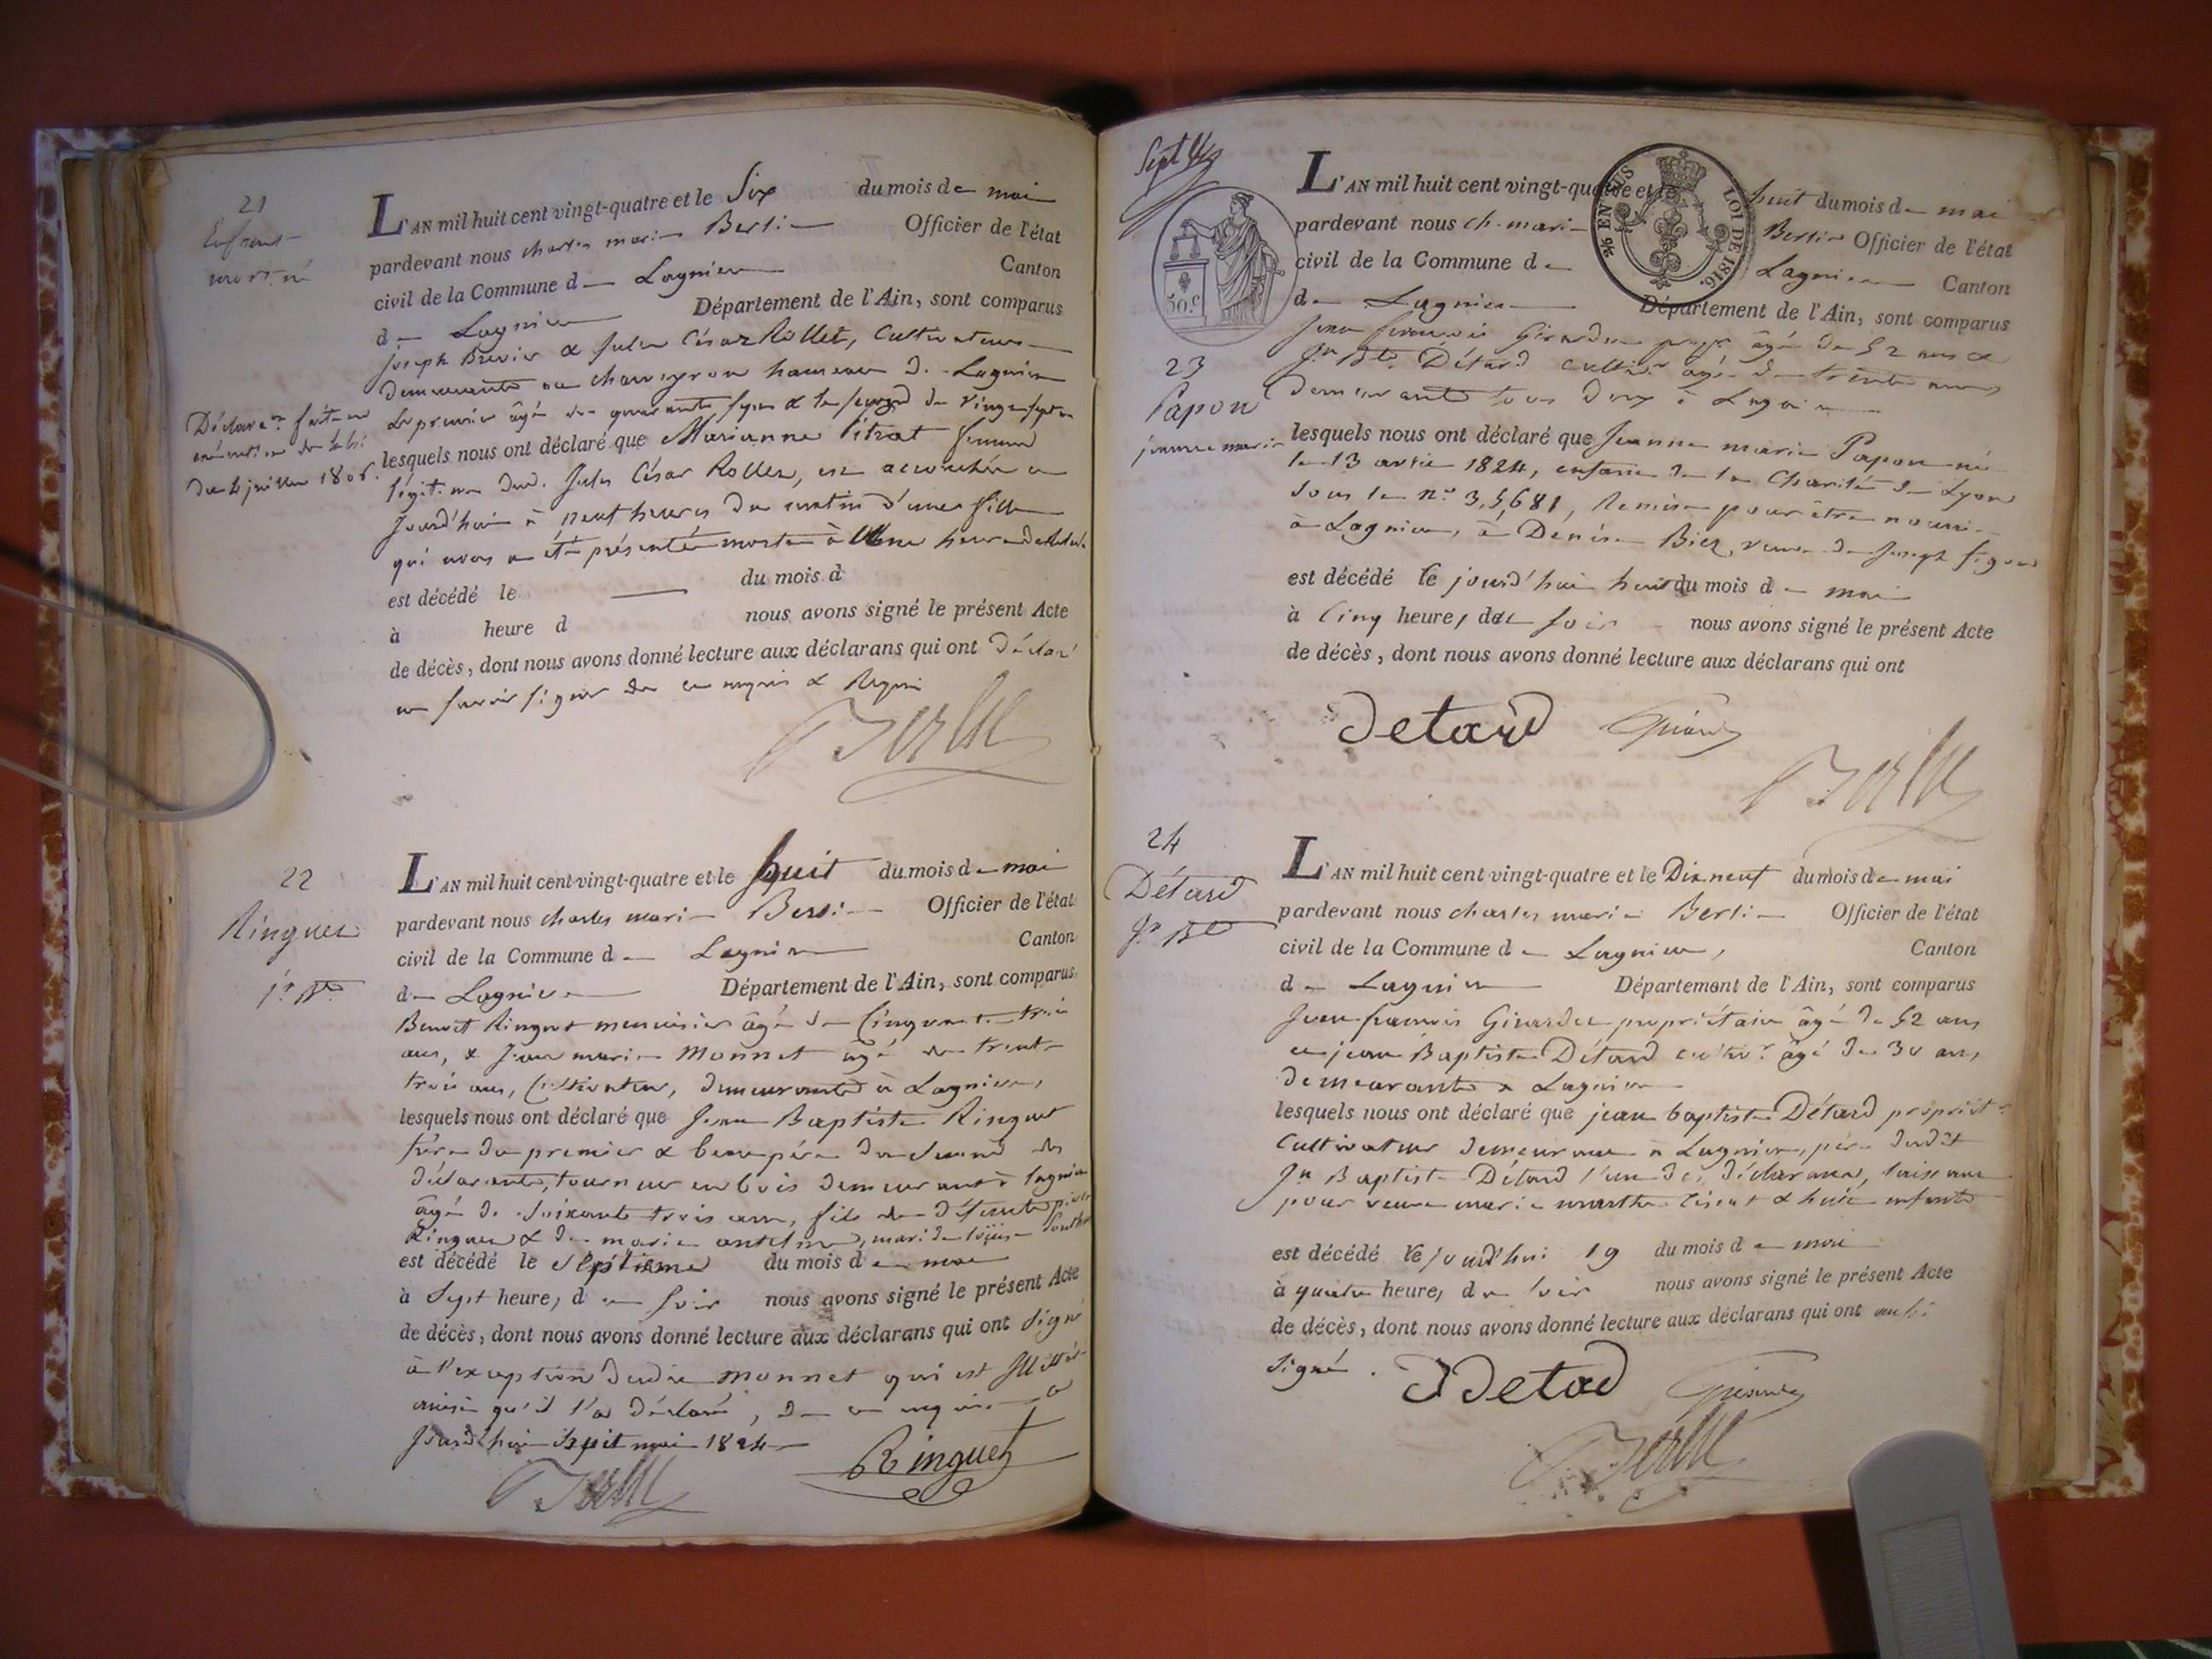 21
Enfant
mort né
L'AN mil huit cent vingt-quatre et le Six du mois de mai
pardevant nous charles marie Berlie Officier de l'état
civil de la Commune de Lagnieu Canton
de Lagnieu Département de l'Ain, sont comparus
joseph Brevier & jules César Rollet, Cultivateurs
demeurants au chaneyron hameau de Lagnieu
Le premier âgé de quarante sept & le second de vingt sept
Déclaron faite en
exécution de la loi
du 4 juillet 1806.
lesquels nous ont déclaré que Marianne Pitrat femme
légitime dud. Jules César Rollet, est accouchée ce
jourd'hui à neuf heures du matin d'une fille
qui nous a été présentée morte à Une heure
est décédé le — du mois d
à heure d nous avons signé le présent Acte
de décès, dont nous avons donné lecture aux déclarans qui ont déclaré
ne savoir signer de ce enquis & Requis
Berlie
22
Ringuet
jn Bte
L'AN mil huit cent vingt-quatre et le huit du mois de mai
pardevant nous charles marie Berlie Officier de l'état
civil de la Commune de Lagnieu Canton
de Lagnieu Département de l'Ain, sont comparus
Benoit Ringuet menuisier âgé de Cinquante trois
ans, & jean marie Monnet âgé de trente
trois ans, Cultivateur, demeurants à Lagnieu,
lesquels nous ont déclaré que Jean Baptiste Ringuet
frère du premier & beaupère du second des
déclarants, tourneur en bois demeurant à lagnieu
âgé de soixante trois ans, fils de défunts pierre
Ringuet & de marie antelme, mari de louise
est décédé le septième du mois de mai
à Sept heures du soir nous avons signé le présent Acte
de décès, dont nous avons donné lecture aux déclarans qui ont signé
à l'exception dudit Monnet qui est Illittéré
ainsi qu'il l'a déclaré, de ce enquis
jourd'hui huit mai 1824
Berlie Ringuet
Sept
50.c
2/6 EN SUS LOI DE 1816.
L'AN mil huit cent vingt-quatre et le huit du mois de mai
pardevant nous ch. marie Berlie Officier de l'état
civil de la Commune de Lagnieu Canton
de Lagnieu Département de l'Ain, sont comparus
23
Papon
jeanne marie
jean françois Girardet propre âgé de 52 ans &
jn Bte Détard cultivr âgé de trente ans
demeurants tous deux à Lagnieu
lesquels nous ont déclaré que Jeanne marie Papon née
le 13 avril 1824, enfant de la Charité de Lyon
sous le no. 3,5,681, Remise pour être nourrie
à Lagnieu, à Dénise Biez, veuve de Joseph figuet
est décédé le jourd'hui huit du mois de mai
à Cinq heures du soir nous avons signé le présent Acte
de décès, dont nous avons donné lecture aux déclarans qui ont
Detard Girardet
Berlie
24
Détard
jn Bte
L'AN mil huit cent vingt-quatre et le Dix neuf du mois de mai
pardevant nous charles marie Berlie Officier de l'état
civil de la Commune de Lagnieu, Canton
de Lagnieu Département de l'Ain, sont comparus
Jean françois Girardet propriétaire âgé de 52 ans
et jean Baptiste Détard cultivr âgé de 30 ans,
demeurants à Lagnieu
lesquels nous ont déclaré que jean baptiste Détard propriétre
cultivateur demeurant à Lagnieu, père dudit
jn Baptiste Détard l'un des déclarans, laissant
pour veuve marie marthe & huit enfants
est décédé le jourd'hui 19 du mois de mai
à quatre heures du soir nous avons signé le présent Acte
de décès, dont nous avons donné lecture aux déclarans qui ont aussi
signé. JDetad Girardet
Berlie